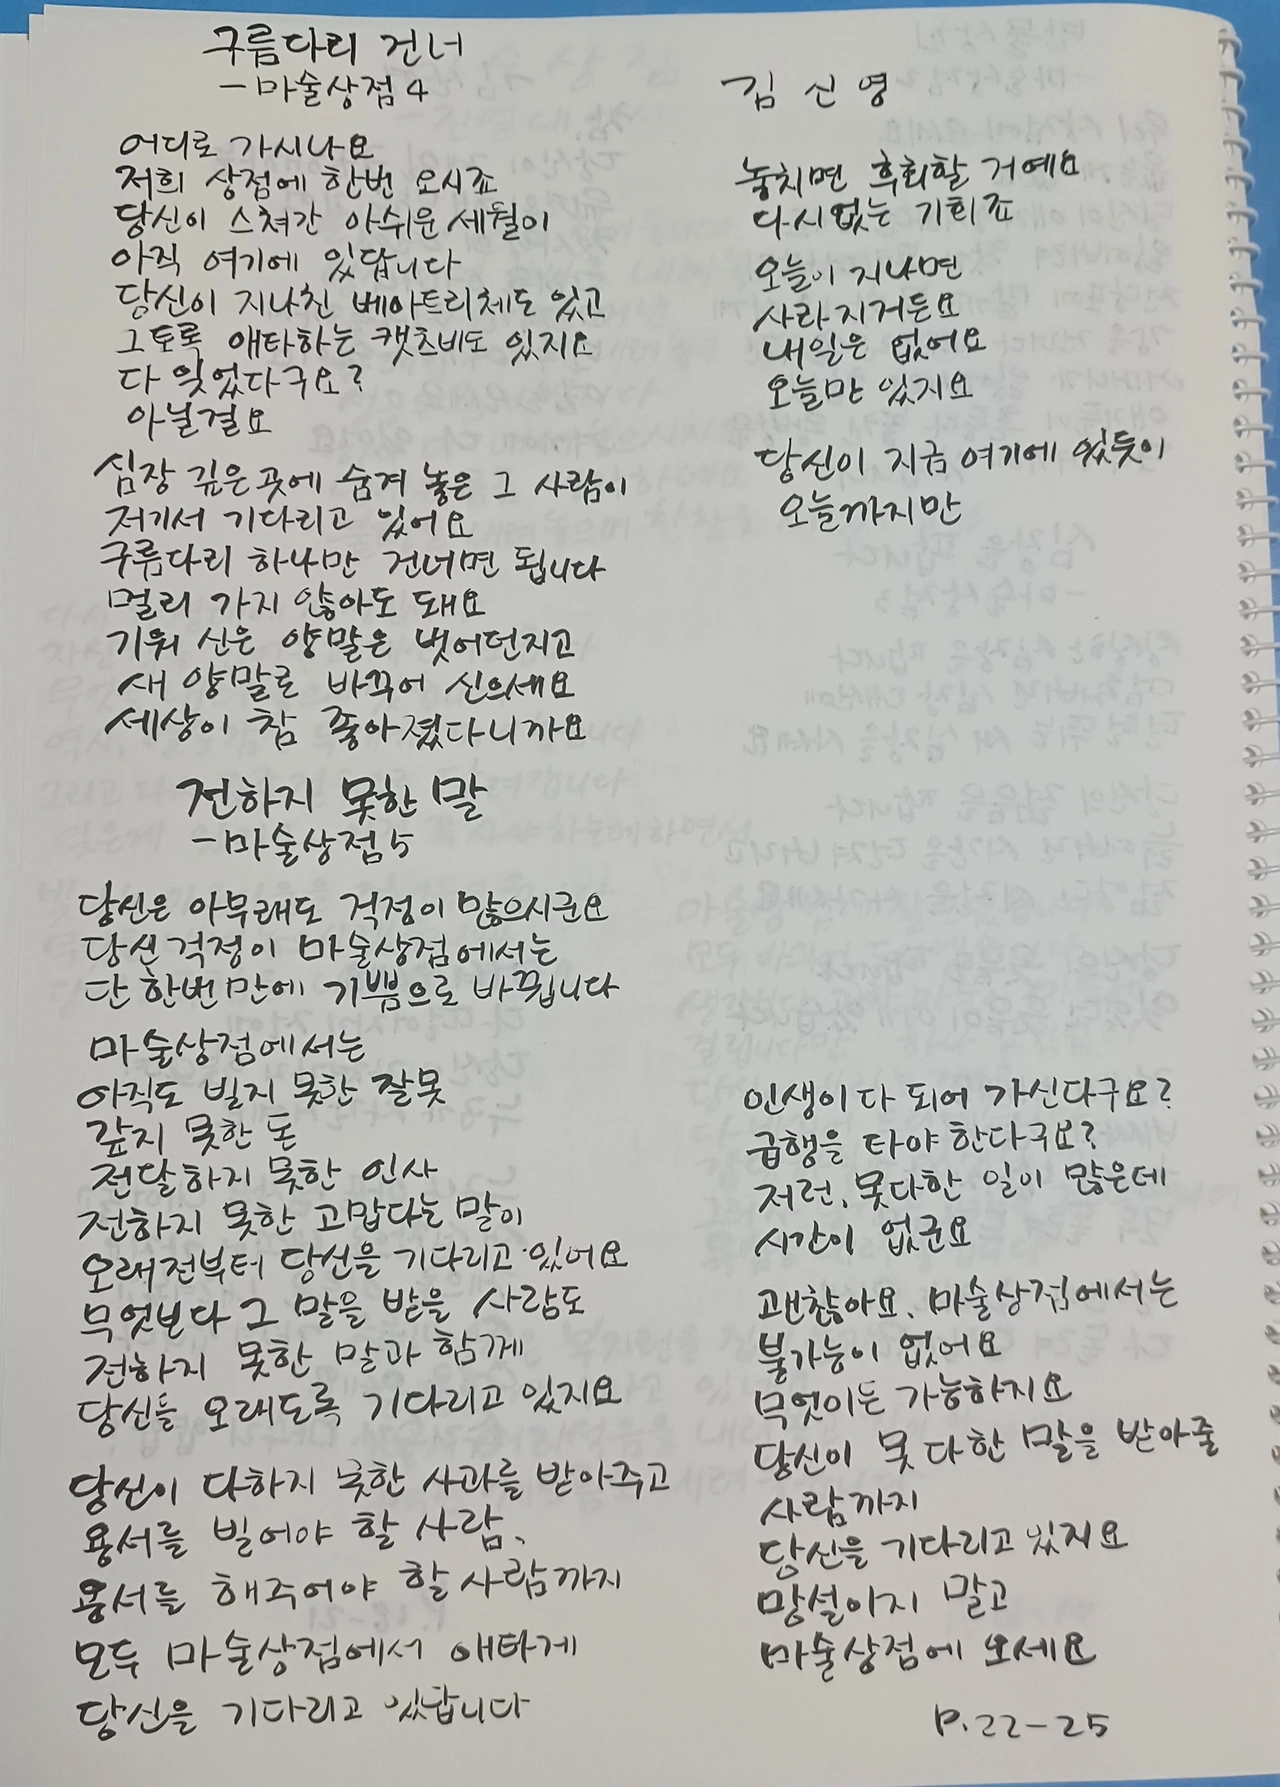 구름다리 건너
- 마술상점 4
김 신 영
어디로 가시나요
저희 상점에 한번 오시죠
당신이 스쳐간 아쉬운 세월이
아직 여기에 있답니다
당신이 지나친 베아트리체도 있고
그토록 애타하는 캣츠비도 있지요
다 잊었다구요?
아닐걸요
심장 깊은 곳에 숨겨 놓은 그 사람이
저기서 기다리고 있어요
구름다리 하나만 건너면 됩니다
멀리 가지 않아도 돼요
기워 신은 양말은 벗어던지고
새 양말로 바꾸어 신으세요
세상이 참 좋아졌다니까요
놓치면 후회할 거예요
다시없는 기회죠
오늘이 지나면
사라지거든요
내일은 없어요
오늘만 있지요
당신이 지금 여기에 있듯이
오늘까지만
전하지 못한 말
- 마술상점 5
당신은 아무래도 걱정이 많으시군요
당신 걱정이 마술상점에서는
단 한번 만에 기쁨으로 바뀝니다
마술상점에서는
아직도 빌지 못한 잘못
갚지 못한 돈
전달하지 못한 인사
전하지 못한 고맙다는 말이
오래전부터 당신을 기다리고 있어요
무엇보다 그 말을 받을 사람도
전하지 못한 말과 함께
당신을 오래도록 기다리고 있지요
당신이 다하지 못한 사과를 받아주고
용서를 빌어야 할 사람,
용서를 해주어야 할 사람까지
모두 마술상점에서 애타게
당신을 기다리고 있답니다
인생이 다 되어 가신다구요?
급행을 타야 한다구요?
저런, 못다한 일이 많은데
시간이 없군요
괜찮아요, 마술상점에서는
불가능이 없어요
무엇이든 가능하지요
당신이 못 다한 말을 받아줄
사람까지
당신을 기다리고 있지요
망설이지 말고
마술상점에 오세요
P.22-25